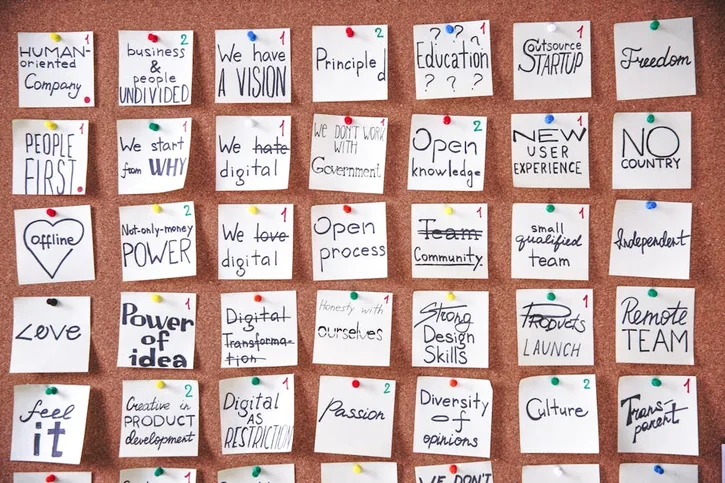 HUMAN-
oriented
Company
2
business
&
people
UNDIVIDED
1
We have
A VISION
2
Principled
1
? ? ?
Education
? ? ?
1
Outsource
STARTUP
Freedom
1
PEOPLE
FIRST.
1
We start
from WHY
1
We hate
digital
1
WE DON'T WORK
WITH
Government
2
Open
knowledge
1
NEW
USER
EXPERIENCE
NO
COUNTRY
offline
2
Not-only-money
POWER
1
We love
digital
1
Open
process
1
Team
Community
1
small
qualified
team
Independent
Love
1
Power
of
idea
Digital
Transforma-
tion
1
Honesty with
ourselves
Strong
Design
Skills
1
Products
LAUNCH
1
Remote
TEAM
feel
it
2
Creative in
PRODUCT
development
1
Digital
AS
RESTRICTION
2
Passion
Diversity
of
opinions
2
Culture
1
Trans-
parent
WE DON'T